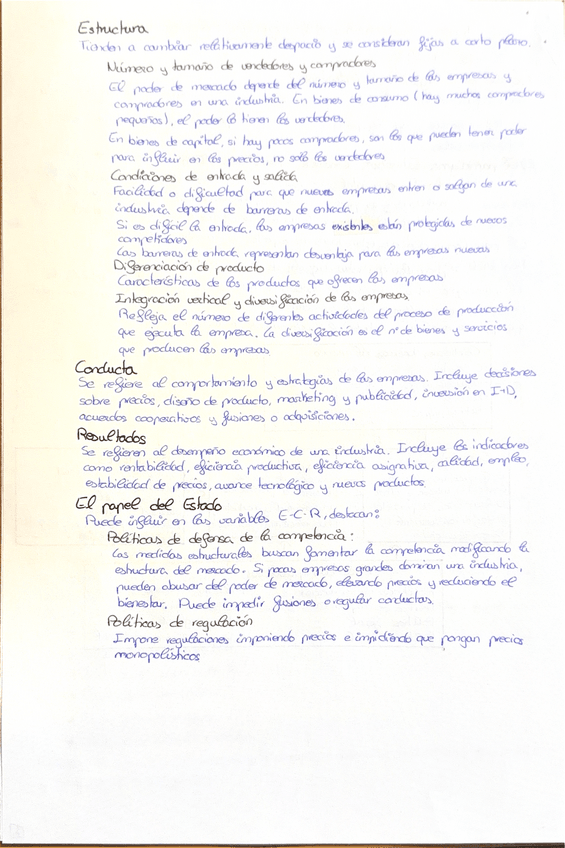 Estructura
Tienden a cambiar relativamente despacio y se consideran fijas a corto plazo.
Número y tamaño de vendedores y compradores
El poder de mercado depende del número y tamaño de las empresas y
compradores en una industria. En bienes de consumo (hay muchos compradores
pequeños), el poder lo tienen los vendedores.
En bienes de capital, si hay pocos compradores, son los que pueden tener poder
para influir en los precios, no solo los vendedores
Condiciones de entrada y salida
Facilidad o dificultad para que nuevas empresas entren o salgan de una
industria depende de barreras de entrada.
Si es difícil la entrada, las empresas existentes están protegidas de nuevos
competidores
Las barreras de entrada representan desventaja para las empresas nuevas
Diferenciación de producto
Características de los productos que ofrecen las empresas
Integración vertical y diversificación de las empresas
Refleja el número de diferentes actividades del proceso de producción
que ejecuta la empresa. La diversificación es el nº de bienes y servicios
que producen las empresas
Conducta
Se refiere al comportamiento y estrategias de las empresas. Incluye decisiones
sobre precios, diseño de producto, marketing y publicidad, inversión en I+D,
acuerdos cooperativos y fusiones o adquisiciones.
Resultados
Se refieren al desempeño económico de una industria. Incluye los indicadores
como rentabilidad, eficiencia productiva, eficiencia asignativa, calidad, empleo,
estabilidad de precios, avance tecnológico y nuevos productos
El papel del Estado
Puede influir en las variables E-C-R, destacan:
Políticas de defensa de la competencia:
Las medidas estructurales buscan fomentar la competencia modificando la
estructura del mercado. Si pocas empresas grandes dominan una industria,
pueden abusar del poder de mercado, elevando precios y reduciendo el
bienestar. Puede impedir fusiones o regular conductas.
Políticas de regulación
Impone regulaciones imponiendo precios e impidiendo que pongan precios
monopolísticos